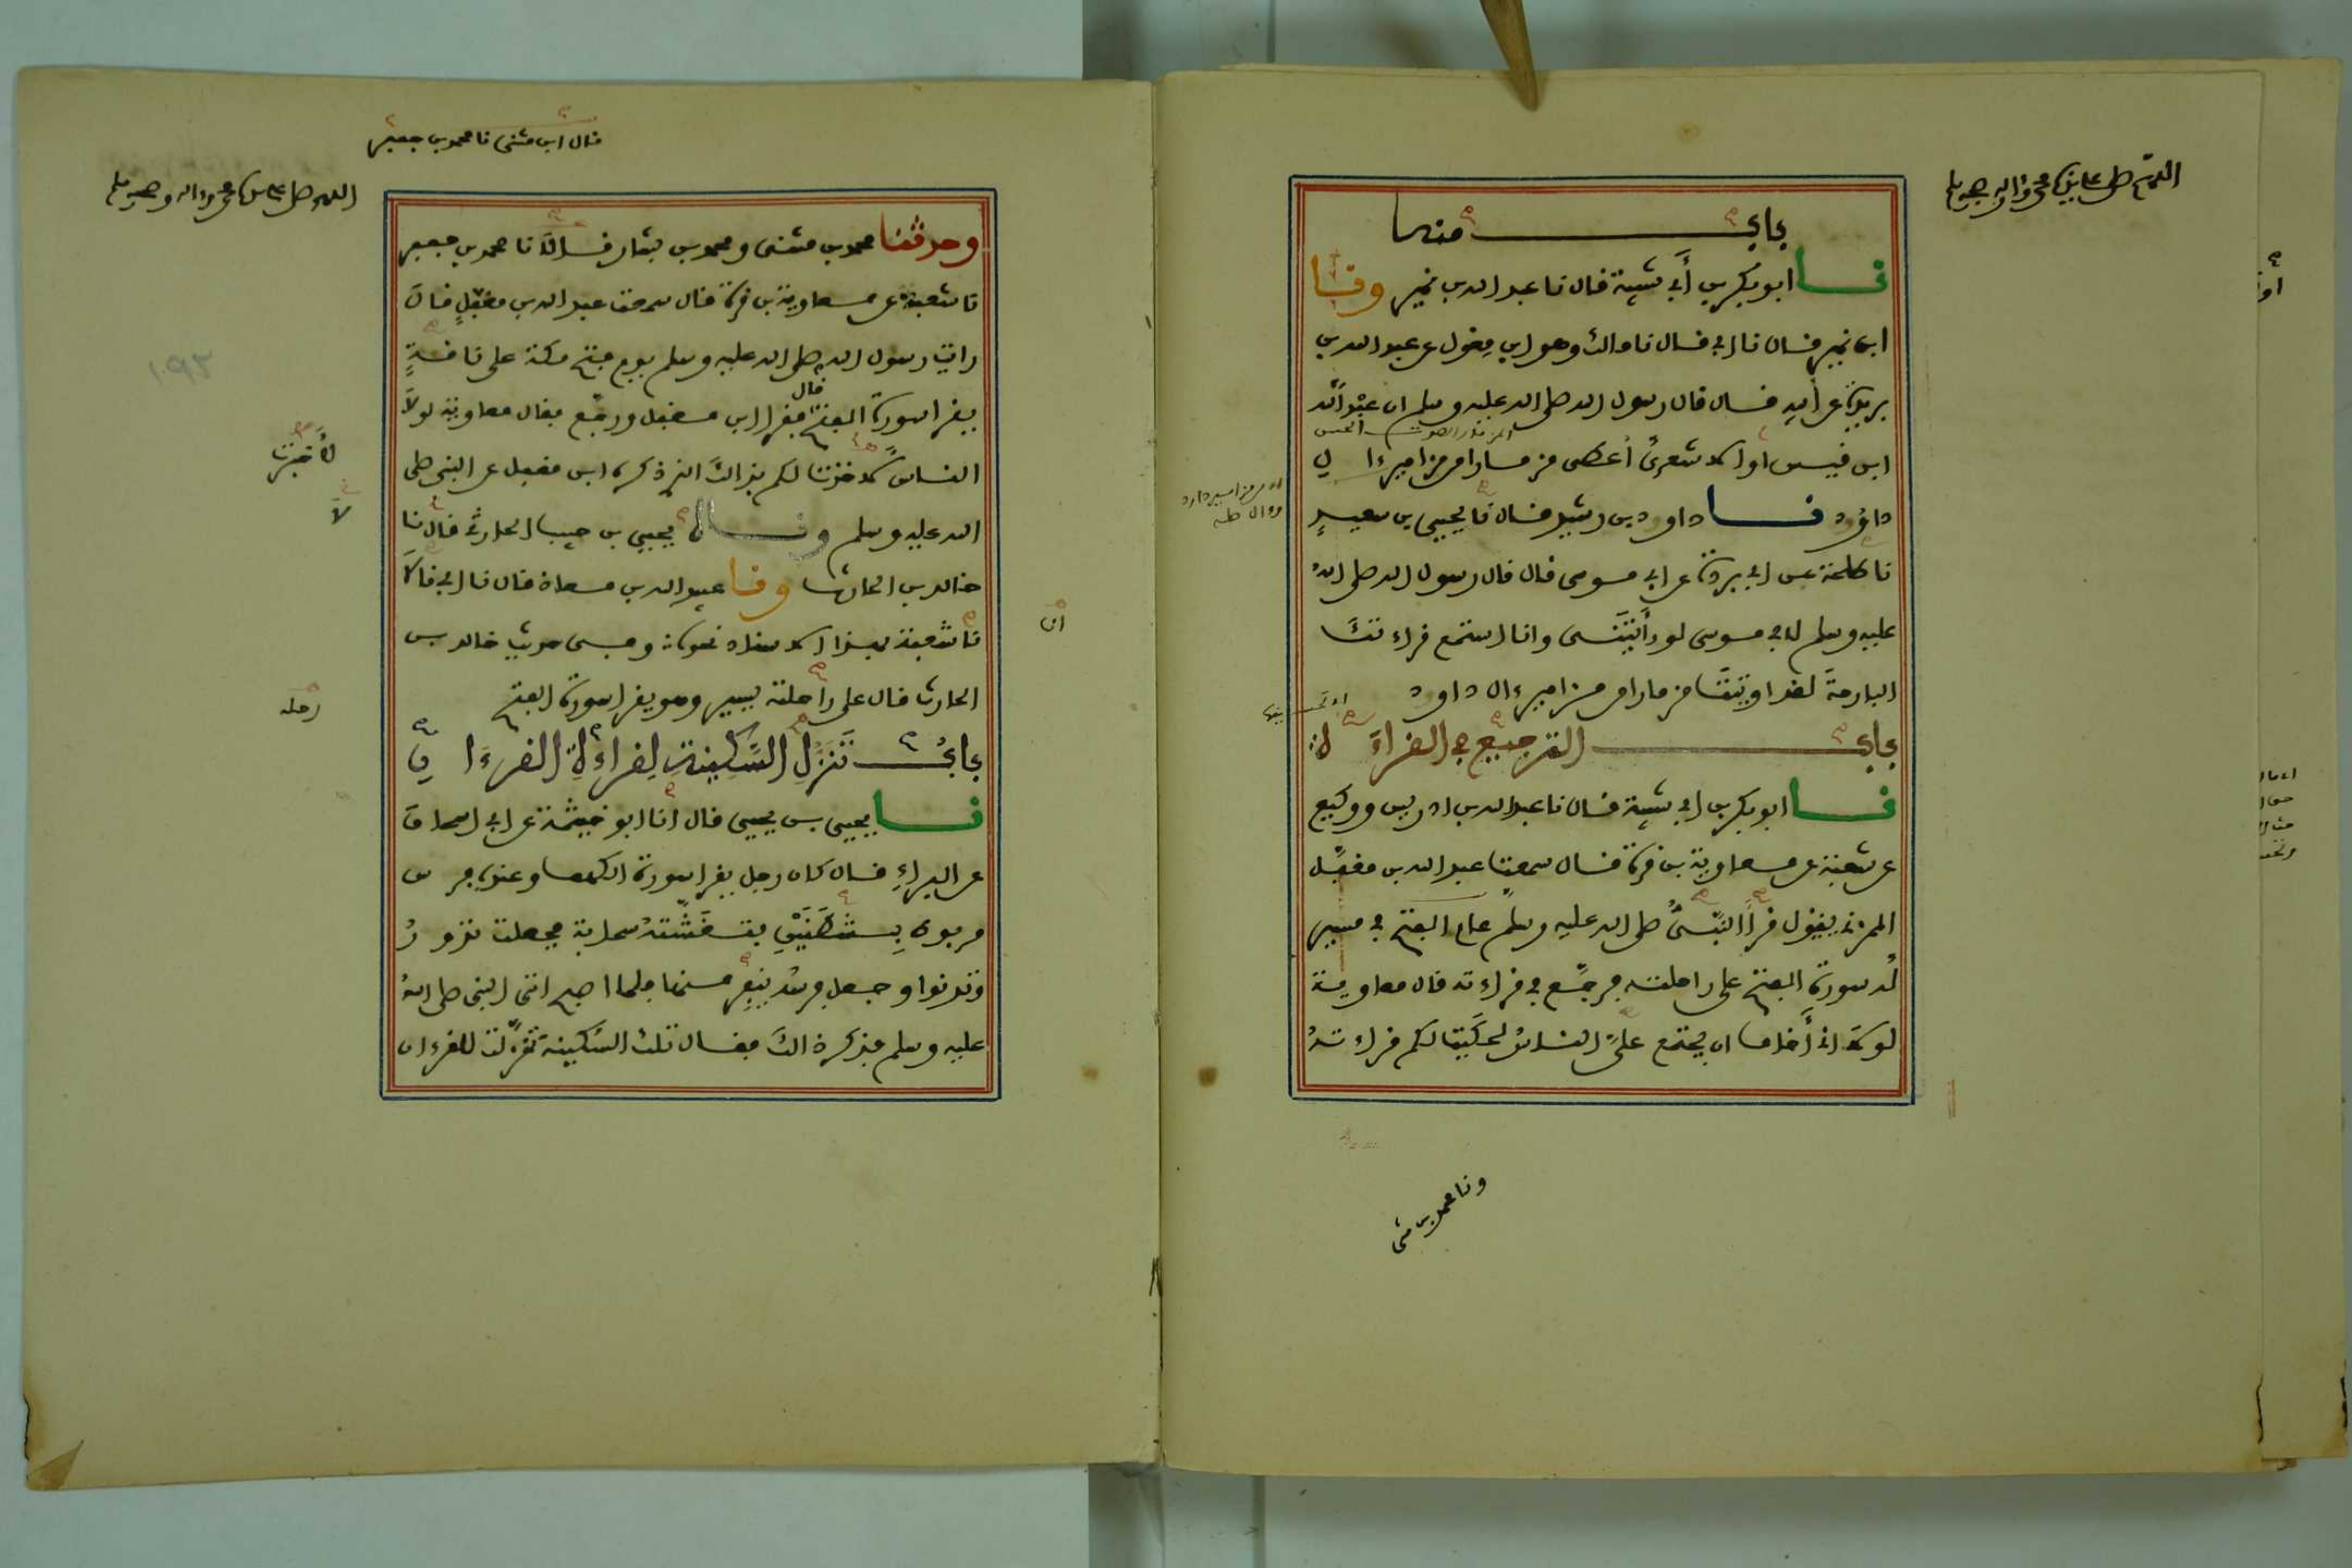 اللهم صل على نبينا محمد واله وصحبه وسلم
باب منه
نا ابو بكر بن أبي شيبة قال نا عبد الله بن نمير ونا
ابن نمير قال نا ابي قال نا مالك وهو ابن مغول عن عبد الله بن
بريدة عن أبيه قال قال رسول الله صلى الله عليه وسلم ان عبد الله
ابن قيس او الاشعري أعطي مزمارا من مزامير ءال
داود نا داود بن رشيد قال نا يحيى بن سعيد
نا طلحة عن ابي بردة عن ابي موسى قال قال رسول الله صلى الله
عليه وسلم لابي موسى لو رأيتني وانا استمع قراءتك
البارحة لقد اوتيت مزمارا من مزامير ءال داود
باب الترجيع في القراءة
نا ابو بكر بن ابي شيبة قال نا عبد الله بن ادريس ووكيع
عن شعبة عن معاوية بن قرة قال سمعت عبد الله بن مغفل
المزني يقول قرأ النبي صلى الله عليه وسلم عام الفتح في مسير
له سورة الفتح على راحلته فرجع في قراءته قال معاوية
لولا اني أخاف ان يجتمع علي الناس لحكيت لكم قراءته
ونا محمد بن مثنى
قال ابن مثنى نا محمد بن جعفر
اللهم صل على نبينا محمد واله وصحبه وسلم
وحدثنا محمد بن مثنى ومحمد بن بشار قالا نا محمد بن جعفر
نا شعبة عن معاوية بن قرة قال سمعت عبد الله بن مغفل قال
رايت رسول الله صلى الله عليه وسلم يوم فتح مكة على ناقة
يقرا سورة الفتح قال فقرا ابن مغفل ورجع فقال معاوية لولا
الناس لاخذت لكم بذالك الذي ذكره ابن مغفل عن النبي صلى
الله عليه وسلم وناه يحيى بن حبيب الحارثي قال نا
خالد بن الحارث ونا عبيد الله بن معاذ قال نا ابي قالا
نا شعبة بهذا الاسناد نحوه وفي حديث خالد بن
الحارث قال على راحلته يسير وهو يقرا سورة الفتح
باب تنزل السكينة لقراءة القرءان
نا يحيى بن يحيى قال انا ابو خيثمة عن ابي اسحاق
عن البراء قال كان رجل يقرا سورة الكهف وعنده فرس
مربوط بشطنين فتغشته سحابة فجعلت تدور
وتدنوا وجعل فرسه ينفر منها فلما اصبح اتى النبي صلى الله
عليه وسلم فذكر ذالك فقال تلك السكينة تنزلت للقرءان
١٩٣
لأخبرت
لا
ان
رحله